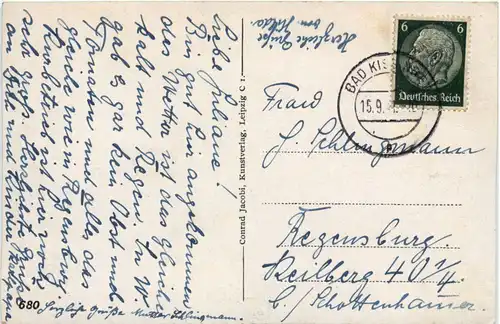 Liebe Juliane!
Bin gut hier angekommen
das Wetter ist das gleiche
kalt und Regen. In W.
gab es gar kein Obst und
Tomaten und alles das
gleiche wie in Regensburg
Kurbetrieb ist hier ruhig
sehr groß. Herzlichste Grüße
an Alle und Hindu
680
Herzliche Grüße Mutter Schlingmann.
Conrad Jacobi, Kunstverlag, Leipzig C 1.
Herzliche Grüße
von Hilda
BAD KIS
15.9.
6 6
Deutsches Reich
Frau
J. Schlingmann
Regensburg.
Keilberg 40 1/4
b/ Schottenhauser.